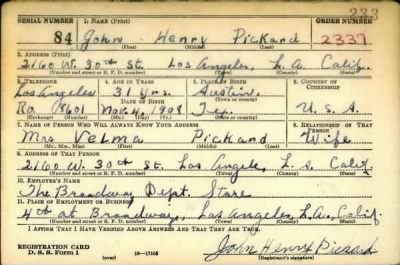 233
SERIAL NUMBER 1. Name (Print) ORDER NUMBER
84 John Henry Pickard 2337
(First) (Middle) (Last)
2. Address (Print)
2160 W. 30th St. Los Angeles, L.A. Calif.
(Number and street or R. F. D. number) (Town) (County) (State)
3. Telephone 4. Age in Years 5. Place of Birth 6. Country of Citizenship
Los Angeles 31 yrs. Austin
Date of Birth (Town or county)
Ro. 8601 Nov. 4, 1909 Tex. U. S. A.
(Exchange) (Number) (Mo.) (Day) (Yr.) (State or country)
7. Name of Person Who Will Always Know Your Address 8. Relationship of That Person
Mrs Velma Pickard Wife
(Mr., Mrs., Miss) (First) (Middle) (Last)
9. Address of That Person
2160 W. 30th St. Los Angeles, L.A. Calif.
(Number and street or R. F. D. number) (Town) (County) (State)
10. Employer's Name
The Broadway Dept. Store
11. Place of Employment or Business
4th at Broadway, Los Angeles, L.A., Calif.
(Number and street or R. F. D. number) (Town) (County) (State)
I Affirm That I Have Verified Above Answers and That They Are True.
REGISTRATION CARD John Henry Pickard
D. S. S. Form 1 (over) 16—17105 (Registrant's signature)